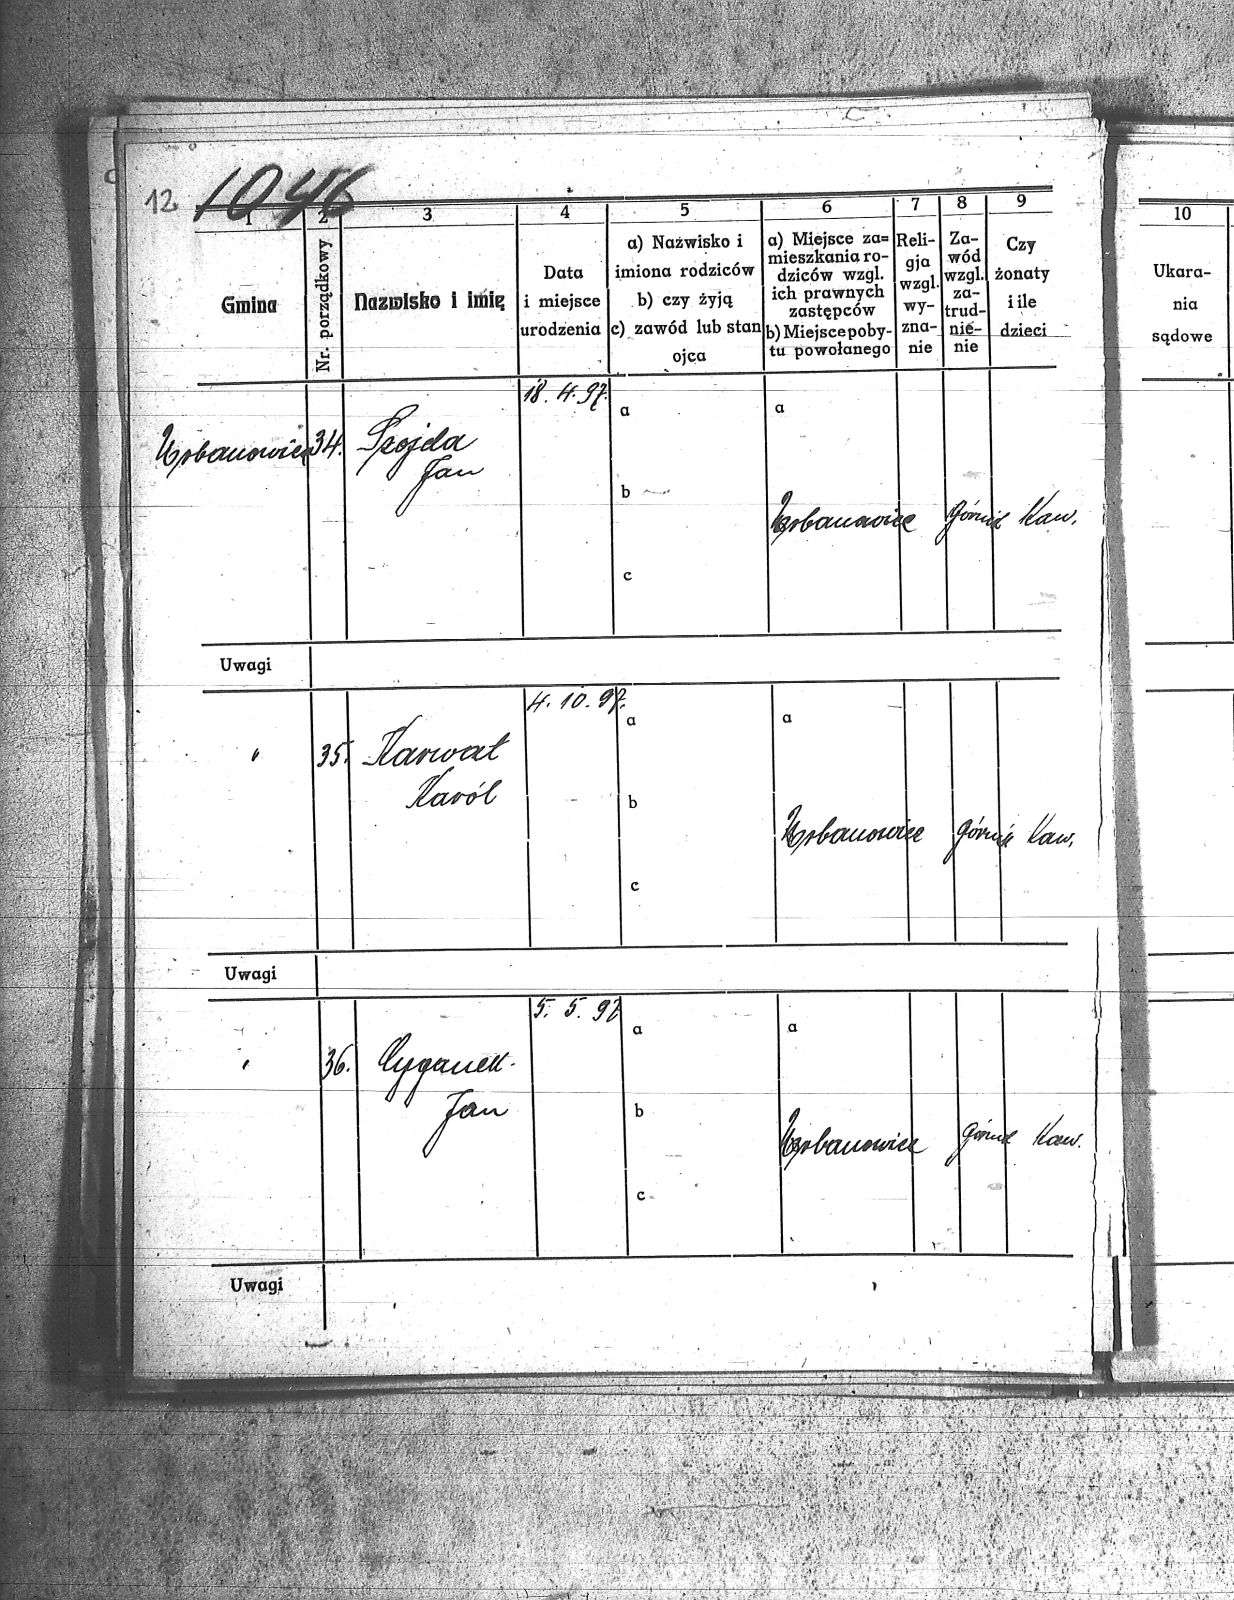 12 1046
1 2 3 4 5 6 7 8 9 10
Gmina
Nr. porządkowy
Nazwisko i imię
Data
i miejsce
urodzenia
a) Nazwisko i
imiona rodziców
b) czy żyją
c) zawód lub stan
ojca
a) Miejsce za=
mieszkania ro-
dziców wzgl.
ich prawnych
zastępców
b) Miejsce poby-
tu powołanego
Reli-
gja
wzgl.
wy-
zna-
nie
Za-
wód
wzgl.
za-
trud-
nie-
nie
Czy
żonaty
i ile
dzieci
Ukara-
nia
sądowe
18. 4. 97.
a a
Urbanowice 34. Szojda
Jan
b
Urbanowice Górnik Kaw.
c
Uwagi
4. 10. 97.
a a
" 35. Karwat
Karól
b
Urbanowice Górnik Kaw.
c
Uwagi
5. 5. 97
a a
" 36. Cyganek
Jan
b
Urbanowice Górnik Kaw.
c
Uwagi